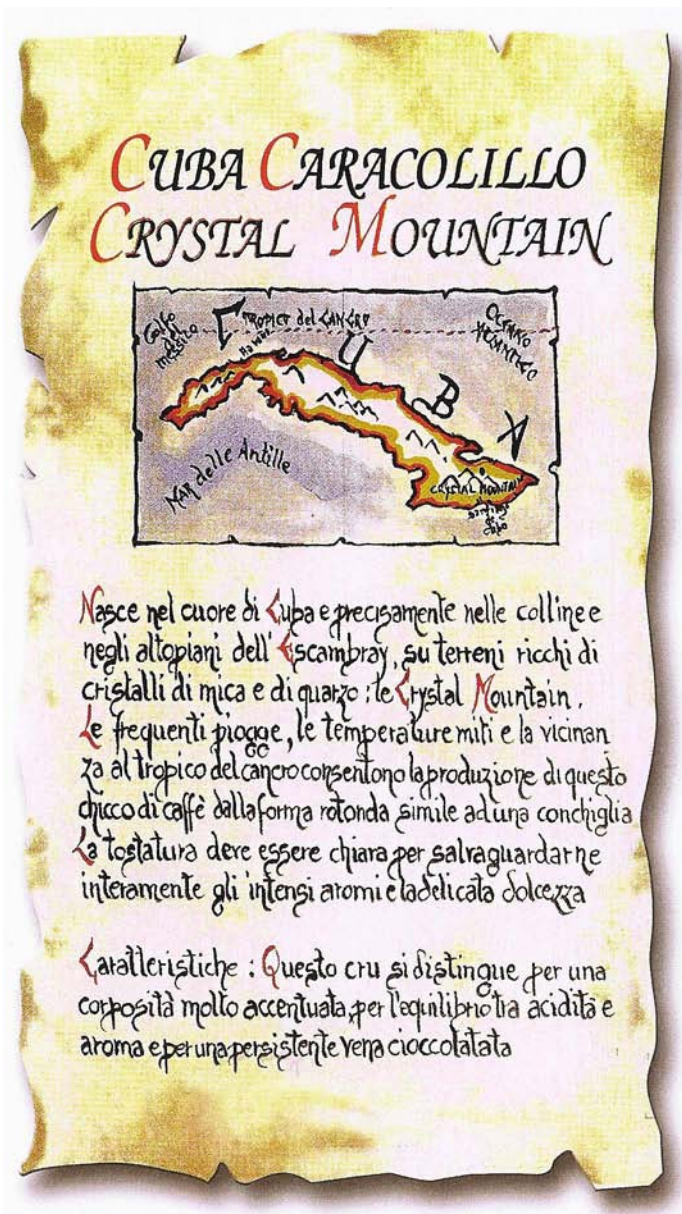 CUBA CARACOLILLO
CRYSTAL MOUNTAIN
Golfo del messico
TROPICO del CANCRO
OCEANO ATLANTICO
CUBA
Mar delle Antille
CRYSTAL MOUNTAIN
Nasce nel cuore di Cuba e precisamente nelle colline e
negli altopiani dell'Escambray, su terreni ricchi di
cristalli di mica e di quarzo : le Crystal Mountain.
Le frequenti piogge, le temperature miti e la vicinan
za al tropico del cancro consentono la produzione di questo
chicco di caffè dalla forma rotonda simile ad una conchiglia
La tostatura deve essere chiara per salvaguardarne
interamente gli intensi aromi e la delicata dolcezza
Caratteristiche : Questo cru si distingue per una
corposità molto accentuata, per l'equilibrio tra acidità e
aroma e per una persistente vena cioccolatata